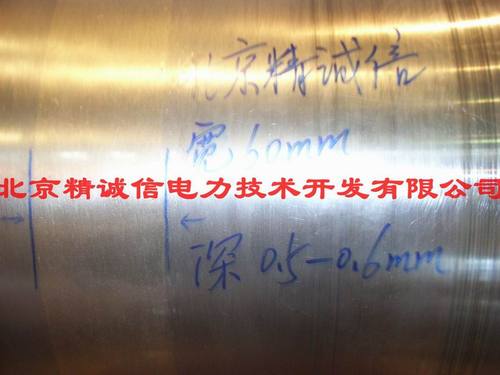 北京精诚信
宽60mm
北京精诚信电力技术开发有限公司
深0.5-0.6mm